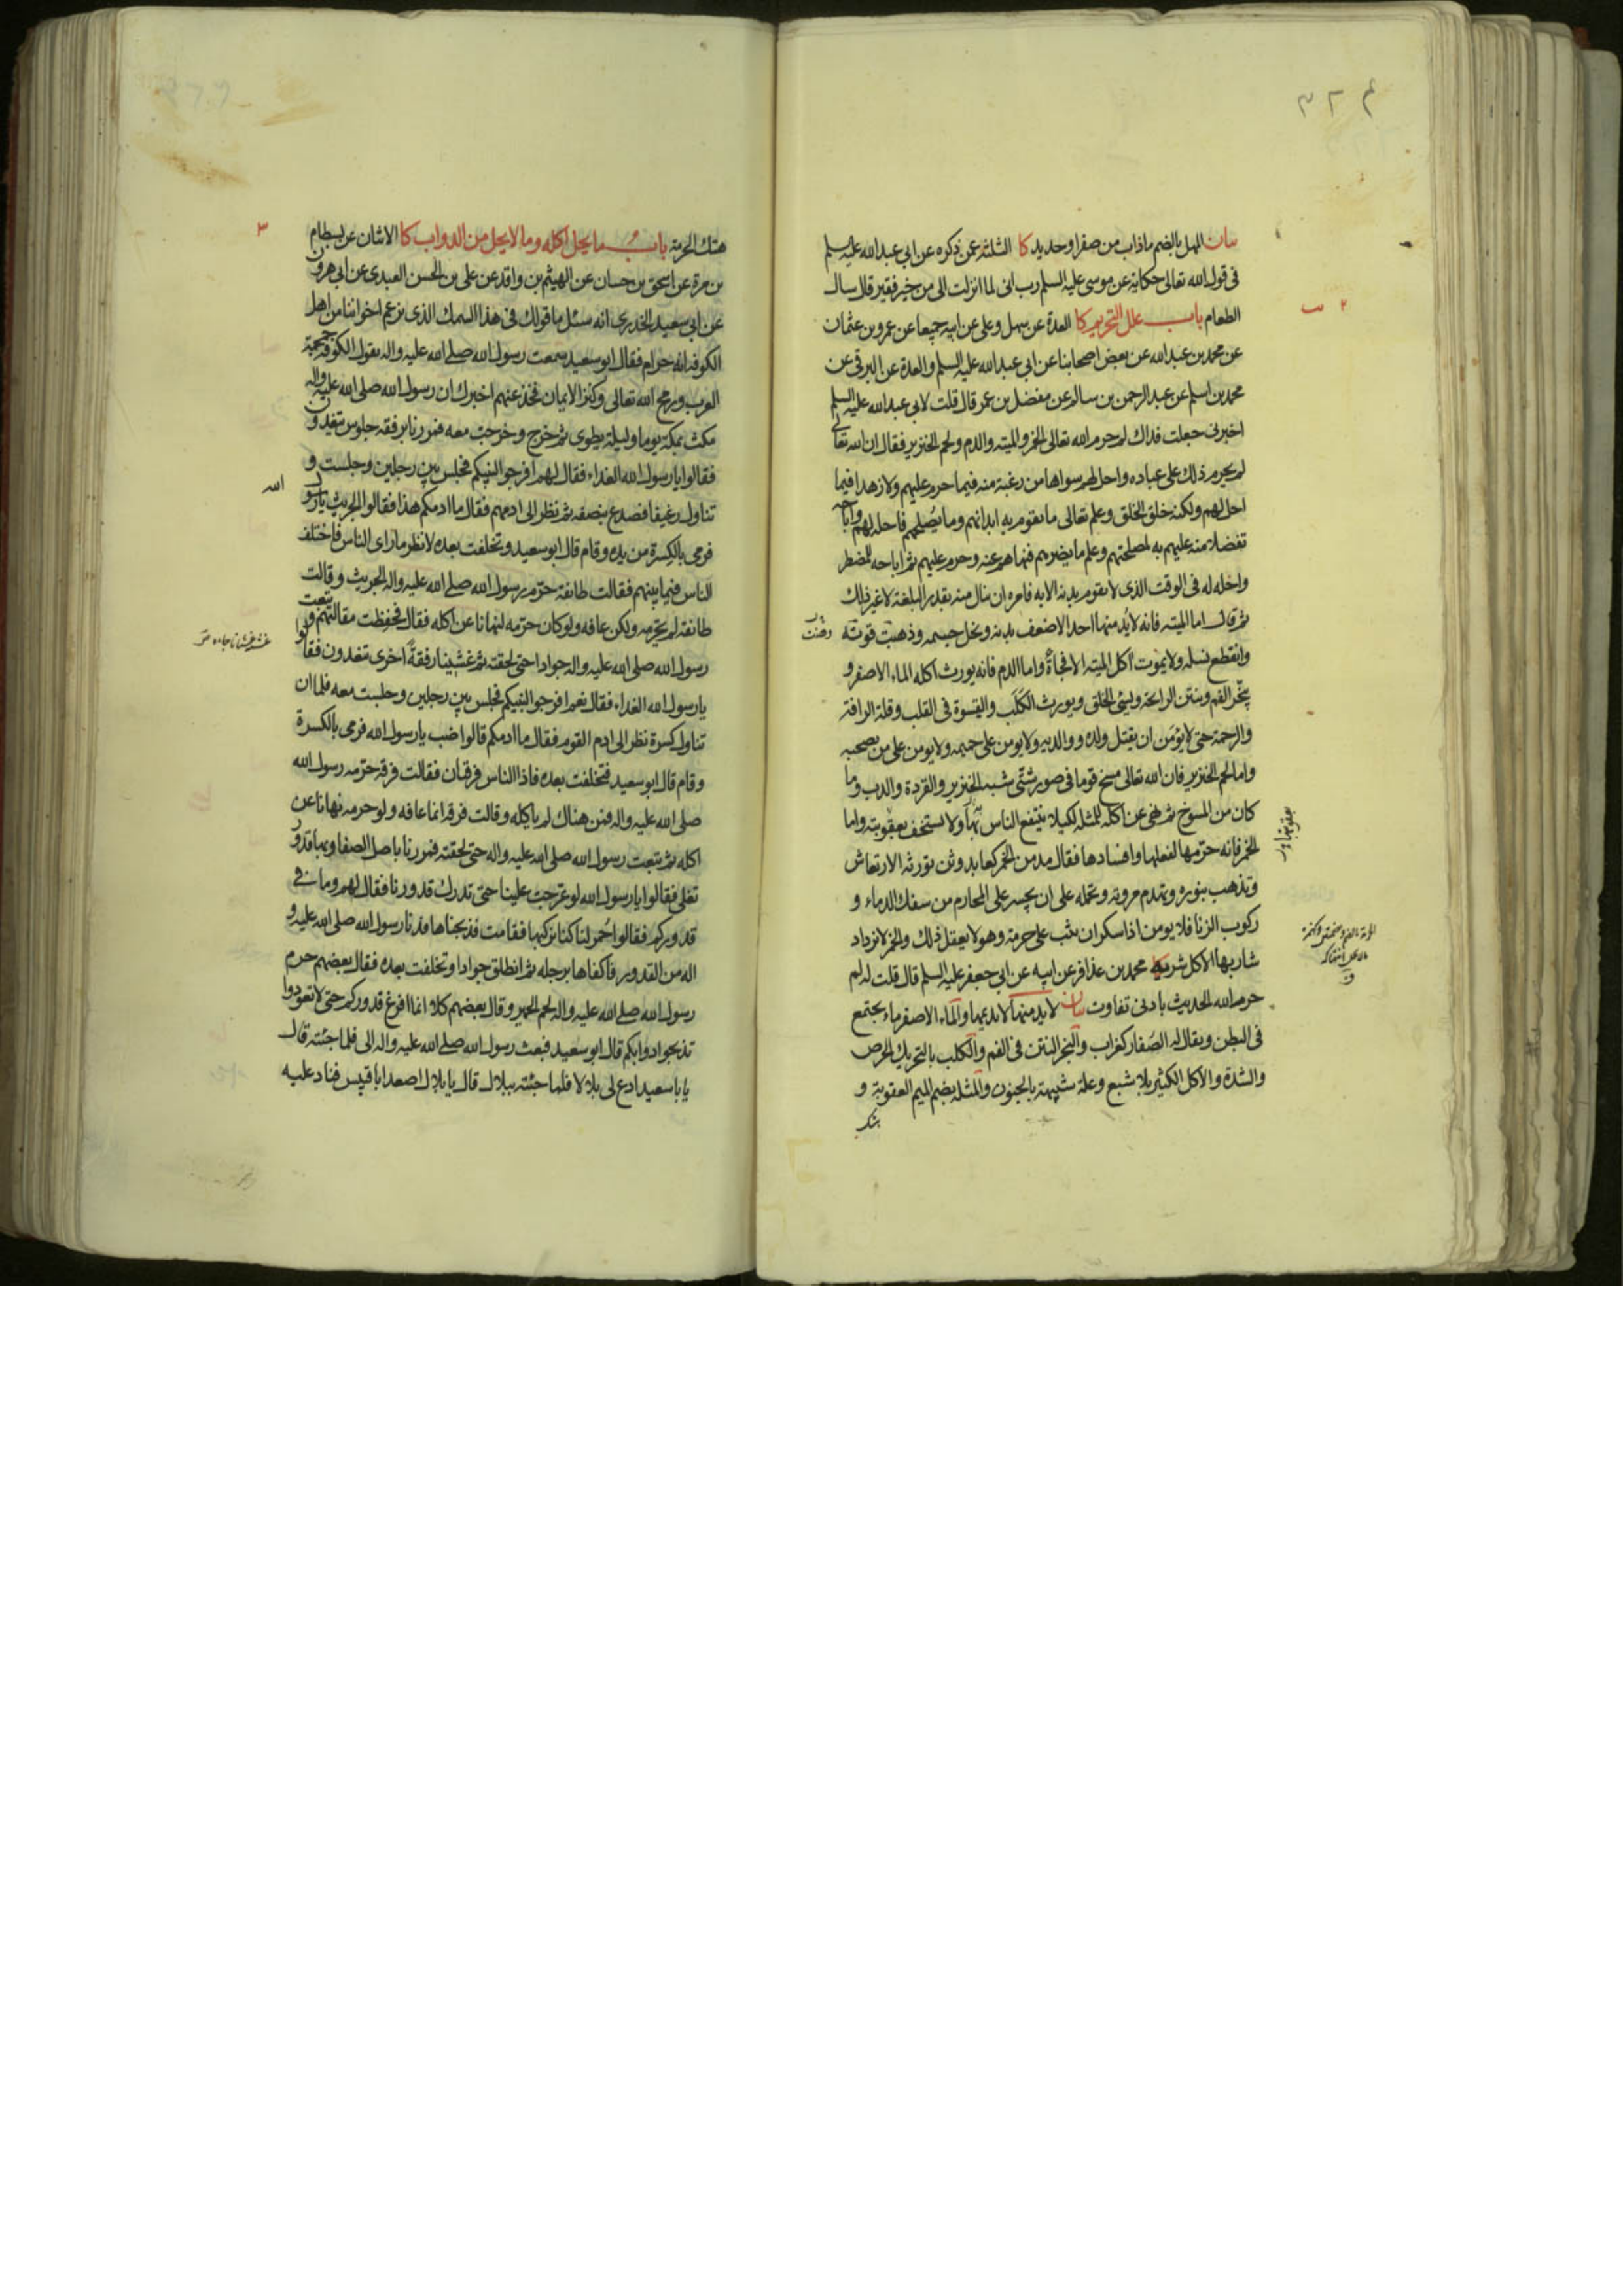 ٣٢٤
بيان المهل بالضم ما ذاب من صفر او حديد كا الثلثة عمن ذكره عن ابي عبد الله عليه السلم
في قول الله تعالى حكاية عن موسى عليه السلم رب اني لما انزلت الي من خير فقير قال سال
الطعام باب علل التحريم كا العدة عن سهل وعلي عن ابيه جميعا عن عمرو بن عثمان
عن محمد بن عبد الله عن بعض اصحابنا عن ابي عبد الله عليه السلم والعدة عن البرقي عن
محمد بن اسلم عن عبد الرحمن بن سالم عن مفضل بن عمر قال قلت لابي عبد الله عليه السلم
اخبرني جعلت فداك لم حرم الله تعالى الخمر والميتة والدم ولحم الخنزير فقال ان الله تعالى
لم يحرم ذلك على عباده واحل لهم سواها من رغبة منه فيما حرم عليهم ولا زهدا فيما
احل لهم ولكنه خلق الخلق وعلم تعالى ما تقوم به ابدانهم وما يصلحهم فاحله لهم واباحه
تفضلا منه عليهم به لمصلحتهم وعلم ما يضرهم فنهاهم عنه وحرم عليهم ثم اباحه للمضطر
واحله له في الوقت الذي لا يقوم بدنه الا به فامره ان ينال منه بقدر البلغة لا غير ذلك
ثم قال اما الميتة فانه لا يدمنها احد الا ضعف بدنه ونحل جسمه وذهبت قوته
وانقطع نسله ولا يموت آكل الميتة الا فجأة واما الدم فانه يورث اكله الماء الاصفر و
يبخر الفم وينتن الرايحة ويسيئ الخلق ويورث الكلب والقسوة في القلب وقلة الرافة
والرحمة حتى لا يؤمن ان يقتل ولده ووالديه ولا يؤمن على حميمه ولا يؤمن على من يصحبه
واما لحم الخنزير فان الله تعالى مسخ قوما في صور شتى شبه الخنزير والقردة والدب وما
كان من المسوخ ثم نهى عن اكله للمثلة لكيلا ينتفع الناس بها ولا يستخف بعقوبته واما
الخمر فانه حرمها لفعلها وافسادها فقال مدمن الخمر كعابد وثن تورثه الارتعاش
وتذهب بنوره وتهدم مروته وتحمله على ان يجسر على المحارم من سفك الدماء و
ركوب الزنا فلا يؤمن اذا سكر ان يثب على حرمه وهو لا يعقل ذلك والخمر لا تزداد
شاربها الا كل شر يه محمد بن عذافر عن ابيه عن ابي جعفر عليه السلم قال قلت له لم
حرم الله الحديث بادنى تفاوت بيان لا يدمنها لا يديمها والماء الاصفر ماء يجتمع
في البطن ويقال له الصفار كغراب والبخر النتن في الفم والكلب بالتحريك الحرص
والشدة والاكل الكثير بلا شبع وعلة شبيهة بالجنون والمثلة بضم الميم العقوبة و
هتك الحرمة باب ما يحل اكله وما لا يحل من الدواب كا الاثنان عن بسطام
بن مرة عن اسحق بن حسان عن الهيثم بن واقد عن علي بن الحسن العبدي عن ابي هرون
عن ابي سعيد الخدري انه سئل ما قولك في هذا السمك الذي يزعم اخواننا من اهل
الكوفة انه حرام فقال ابو سعيد سمعت رسول الله صلى الله عليه واله يقول الكوفة جمجمة
العرب ورمح الله تعالى وكنز الايمان فخذ عنهم اخبرك ان رسول الله صلى الله عليه واله
مكث بمكة يوما وليلة يطوي ثم خرج وخرجت معه فمررنا برفقة جلوس يتغدون
فقالوا يا رسول الله الغداء فقال لهم افرجوا لنبيكم فجلس بين رجلين وجلست و
تناول رغيفا فصدع بنصفه ثم نظر الى ادمهم فقال ما ادمكم هذا فقالوا الجريث يا رسول
الله
فرمى بالكسرة من يده وقام قال ابو سعيد وتخلفت بعده لانظر ما راى الناس فاختلف
الناس فيما بينهم فقالت طائفة حرم رسول الله صلى الله عليه واله الجريث وقالت
طائفة لم يحرمه ولكن عافه ولو كان حرمه لنهانا عن اكله فقال فحفظت مقالتهم وتبعت
رسول الله صلى الله عليه واله جوادا حتى لحقته ثم غشينا رفقة اخرى يتغدون فقالوا
يا رسول الله الغداء فقال نعم افرجوا لنبيكم فجلس بين رجلين وجلست معه فلما ان
تناول كسرة نظر الى ادم القوم فقال ما ادمكم قالوا ضب يا رسول الله فرمى بالكسرة
وقام قال ابو سعيد فتخلفت بعده فاذا الناس فرقتان فقالت فرقة حرمه رسول الله
صلى الله عليه واله فمن هناك لم ياكله وقالت فرقة انما عافه ولو حرمه نهانا عن
اكله ثم تبعت رسول الله صلى الله عليه واله حتى لحقته فمررنا باصل الصفا وبها قدور
تغلي فقالوا يا رسول الله لو عرجت علينا حتى تدرك قدورنا فقال لهم وما في
قدوركم فقالوا حمر لنا كنا نركبها فقامت فذبحناها فدنا رسول الله صلى الله عليه و
اله من القدور فاكفاها برجله ثم انطلق جوادا وتخلفت بعده فقال بعضهم حرم
رسول الله صلى الله عليه واله لحم الحمير وقال بعضهم كلا انما افرغ قدوركم حتى لا تعودوا
تذبحوا دوابكم قال ابو سعيد فبعث رسول الله صلى الله عليه واله الي فلما جئته قال
يا با سعيد ادع لي بلالا فلما جئته ببلال قال يا بلال اصعد ابا قبيس فناد عليه